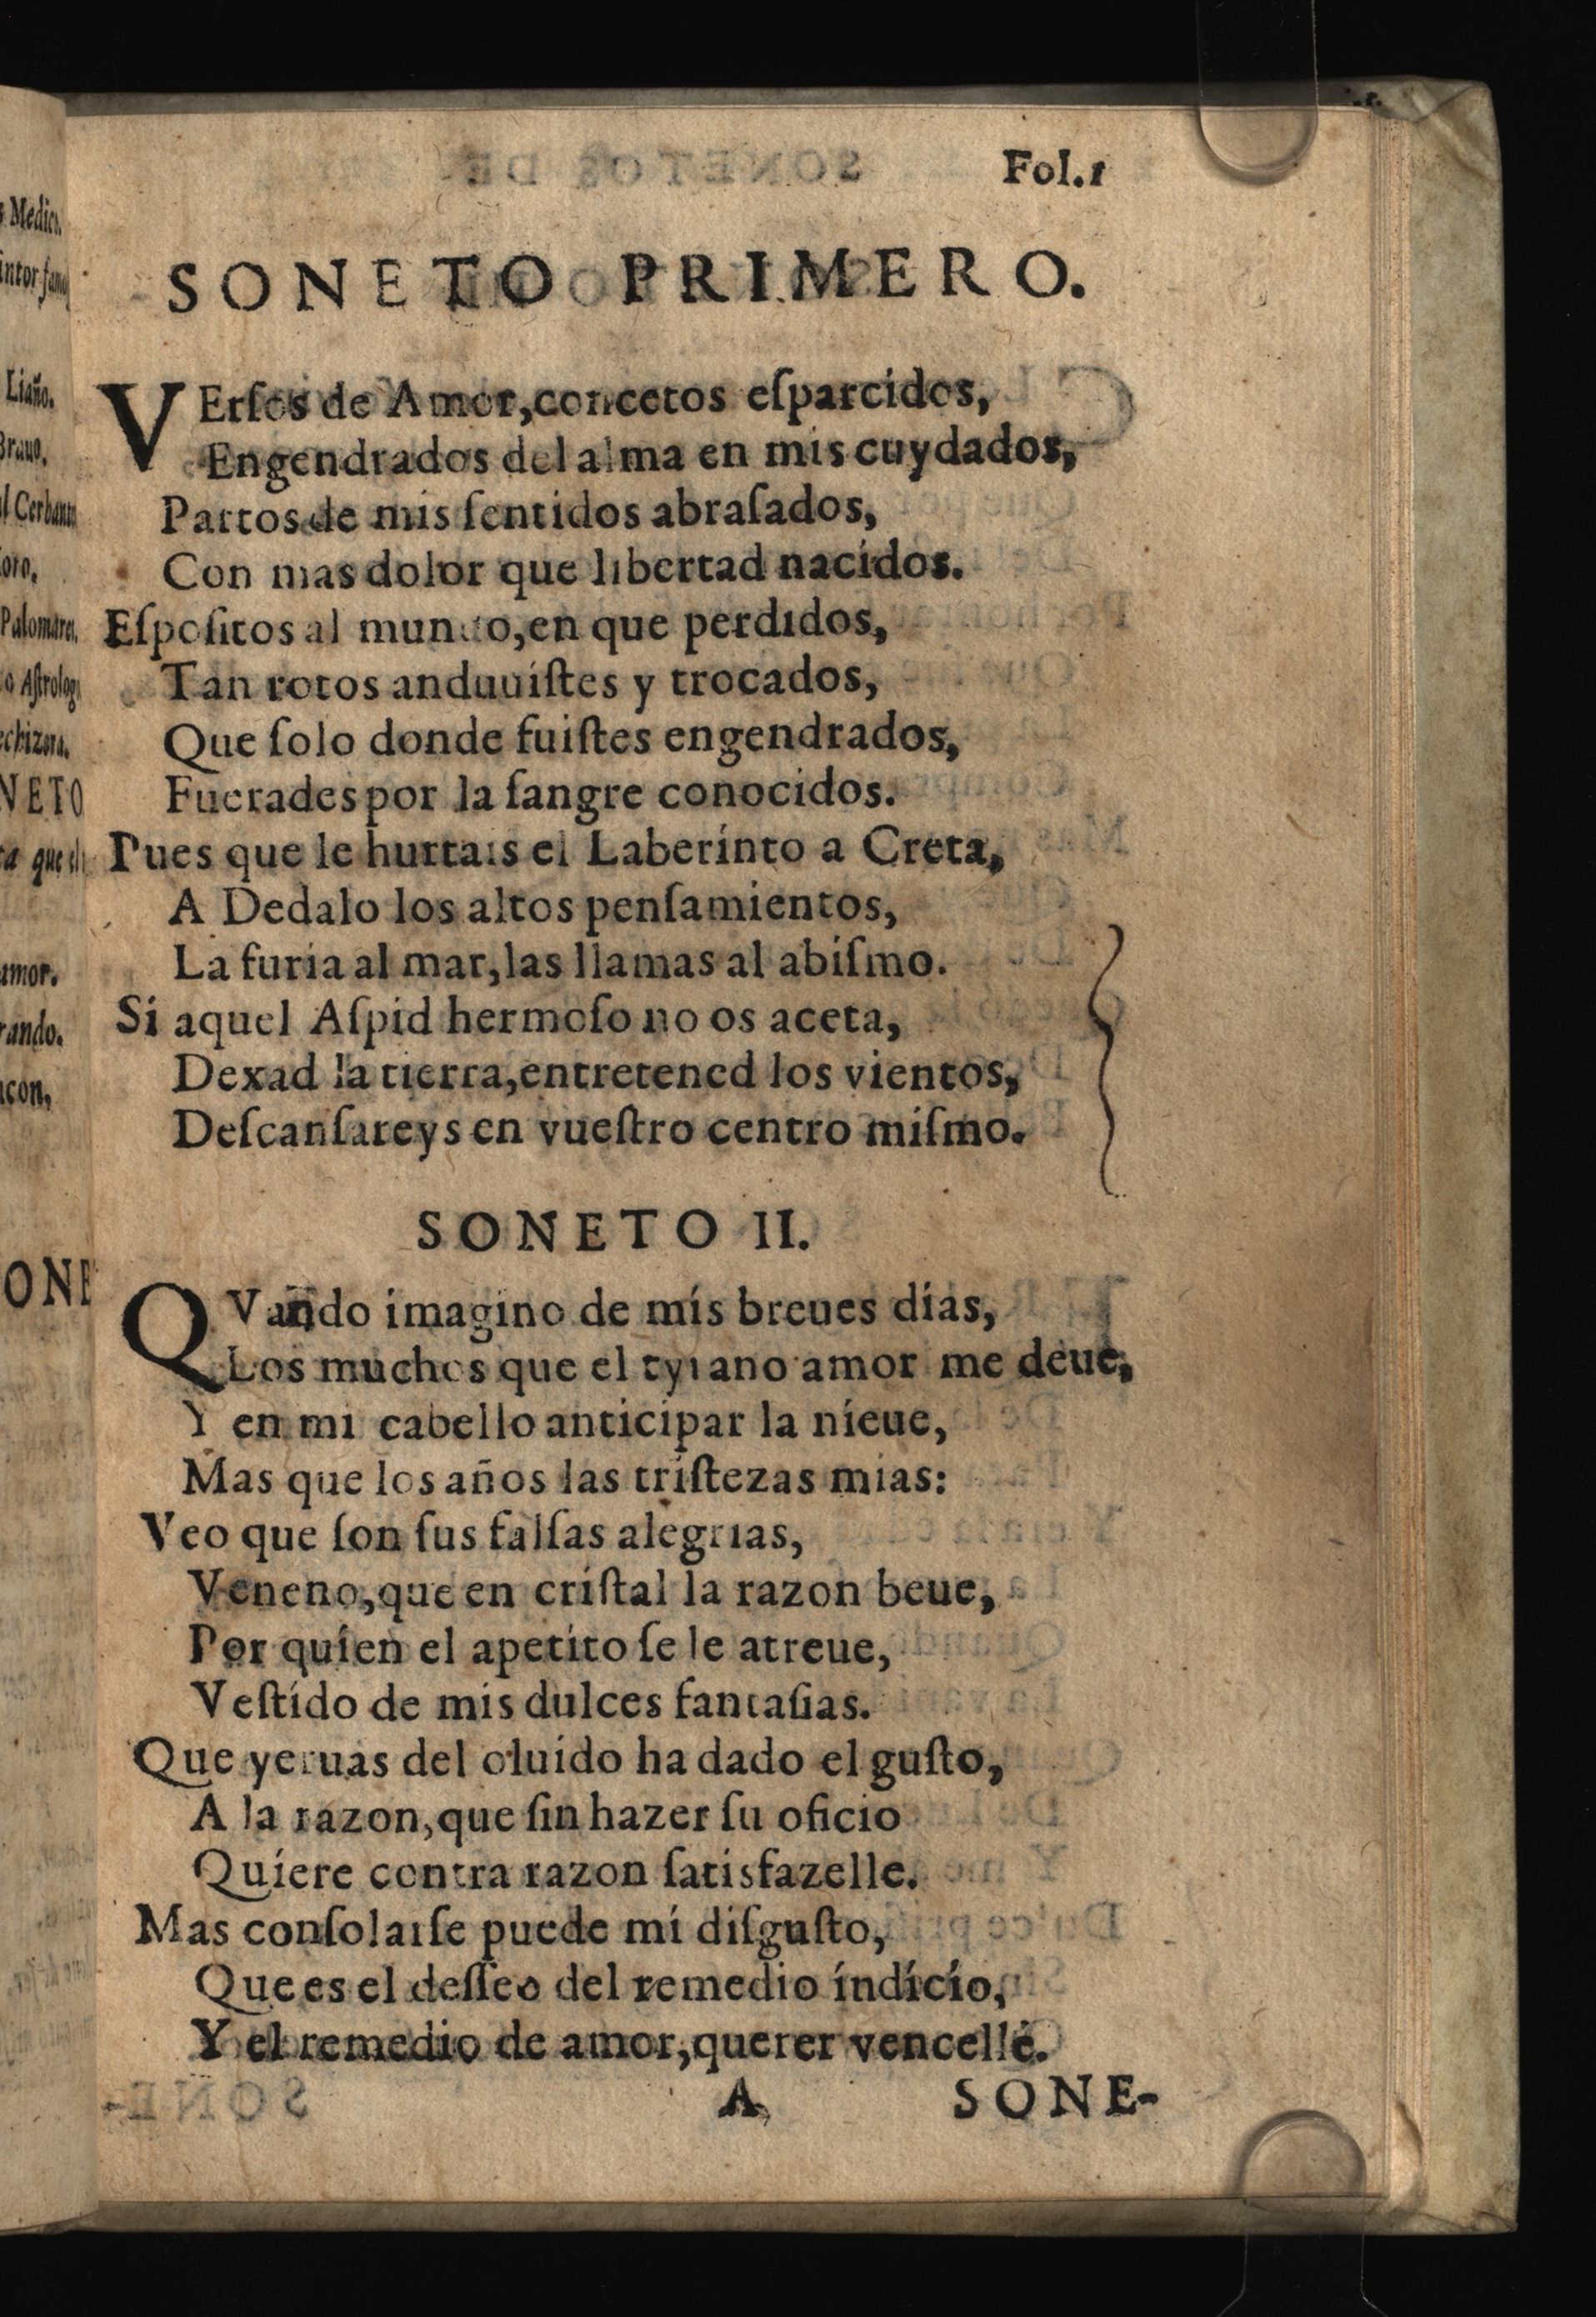 Medico.
Liaño.
Brauo,
Palomares.
o Aſtrolog
NETO
amor.
ONE
Fol.1
SONETO PRIMERO.
VErſos de Amor,concetos eſparcidos,
Engendrados del alma en mis cuydados,
Partos de mis ſentidos abraſados,
Con mas dolor que libertad nacidos.
Eſpoſitos al mundo,en que perdidos,
Tan rotos anduuiſtes y trocados,
Que ſolo donde fuiſtes engendrados,
Fuerades por la ſangre conocidos.
Pues que le hurtais el Laberinto a Creta,
A Dedalo los altos penſamientos,
La furia al mar,las llamas al abiſmo.
Si aquel Aſpid hermoſo no os aceta,
Dexad la tierra,entretened los vientos,
Deſcanſareys en vueſtro centro miſmo.
SONETO II.
QVando imagino de mis breues dias,
Los muchos que el tyrano amor me deue,
Y en mi cabello anticipar la nieue,
Mas que los años las triſtezas mias:
Veo que ſon ſus falſas alegrias,
Veneno,que en criſtal la razon beue,
Por quien el apetito ſe le atreue,
Veſtido de mis dulces fantaſias.
Que yeruas del oluido ha dado el guſto,
A la razon,que ſin hazer ſu oficio
Quiere contra razon ſatisfazelle.
Mas conſolarſe puede mi diſguſto,
Que es el deſſeo del remedio indicio,
Y el remedio de amor,querer vencelle.
A SONE-